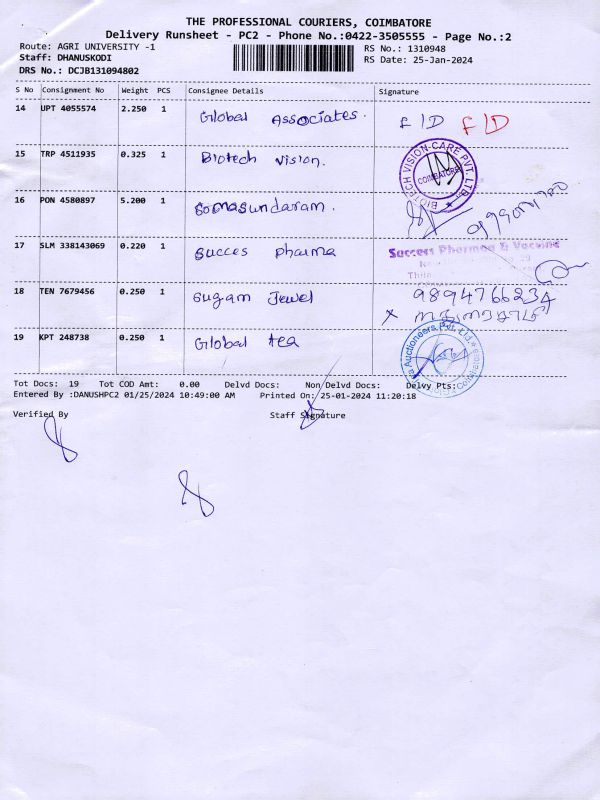 THE PROFESSIONAL COURIERS, COIMBATORE
Delivery Runsheet - PC2 - Phone No.:0422-3505555 - Page No.:2
Route: AGRI UNIVERSITY -1 RS No.: 1310948
Staff: DHANUSKODI RS Date: 25-Jan-2024
DRS No.: DCJB131094802
S No Consignment No Weight PCS Consignee Details Signature
14 UPT 4055574 2.250 1 Global Associates. F/D F/D
15 TRP 4511935 0.325 1 Biotech Vision.
BIOTECH VISION-CARE PVT. LTD.
COIMBATORE
16 PON 4580897 5.200 1 Somasundaram.
17 SLM 338143069 0.220 1 Succes pharma
Success Pharma & Vaccine
18 TEN 7679456 0.250 1 Sugam Jewel 9894766234
x
19 KPT 248738 0.250 1 Global tea
Auctioneers Pvt. Ltd.
Tot Docs: 19 Tot COD Amt: 0.00 Delvd Docs: Non Delvd Docs: Delvy Pts:
Entered By :DANUSHPC2 01/25/2024 10:49:00 AM Printed On: 25-01-2024 11:20:18
Verified By Staff Signature